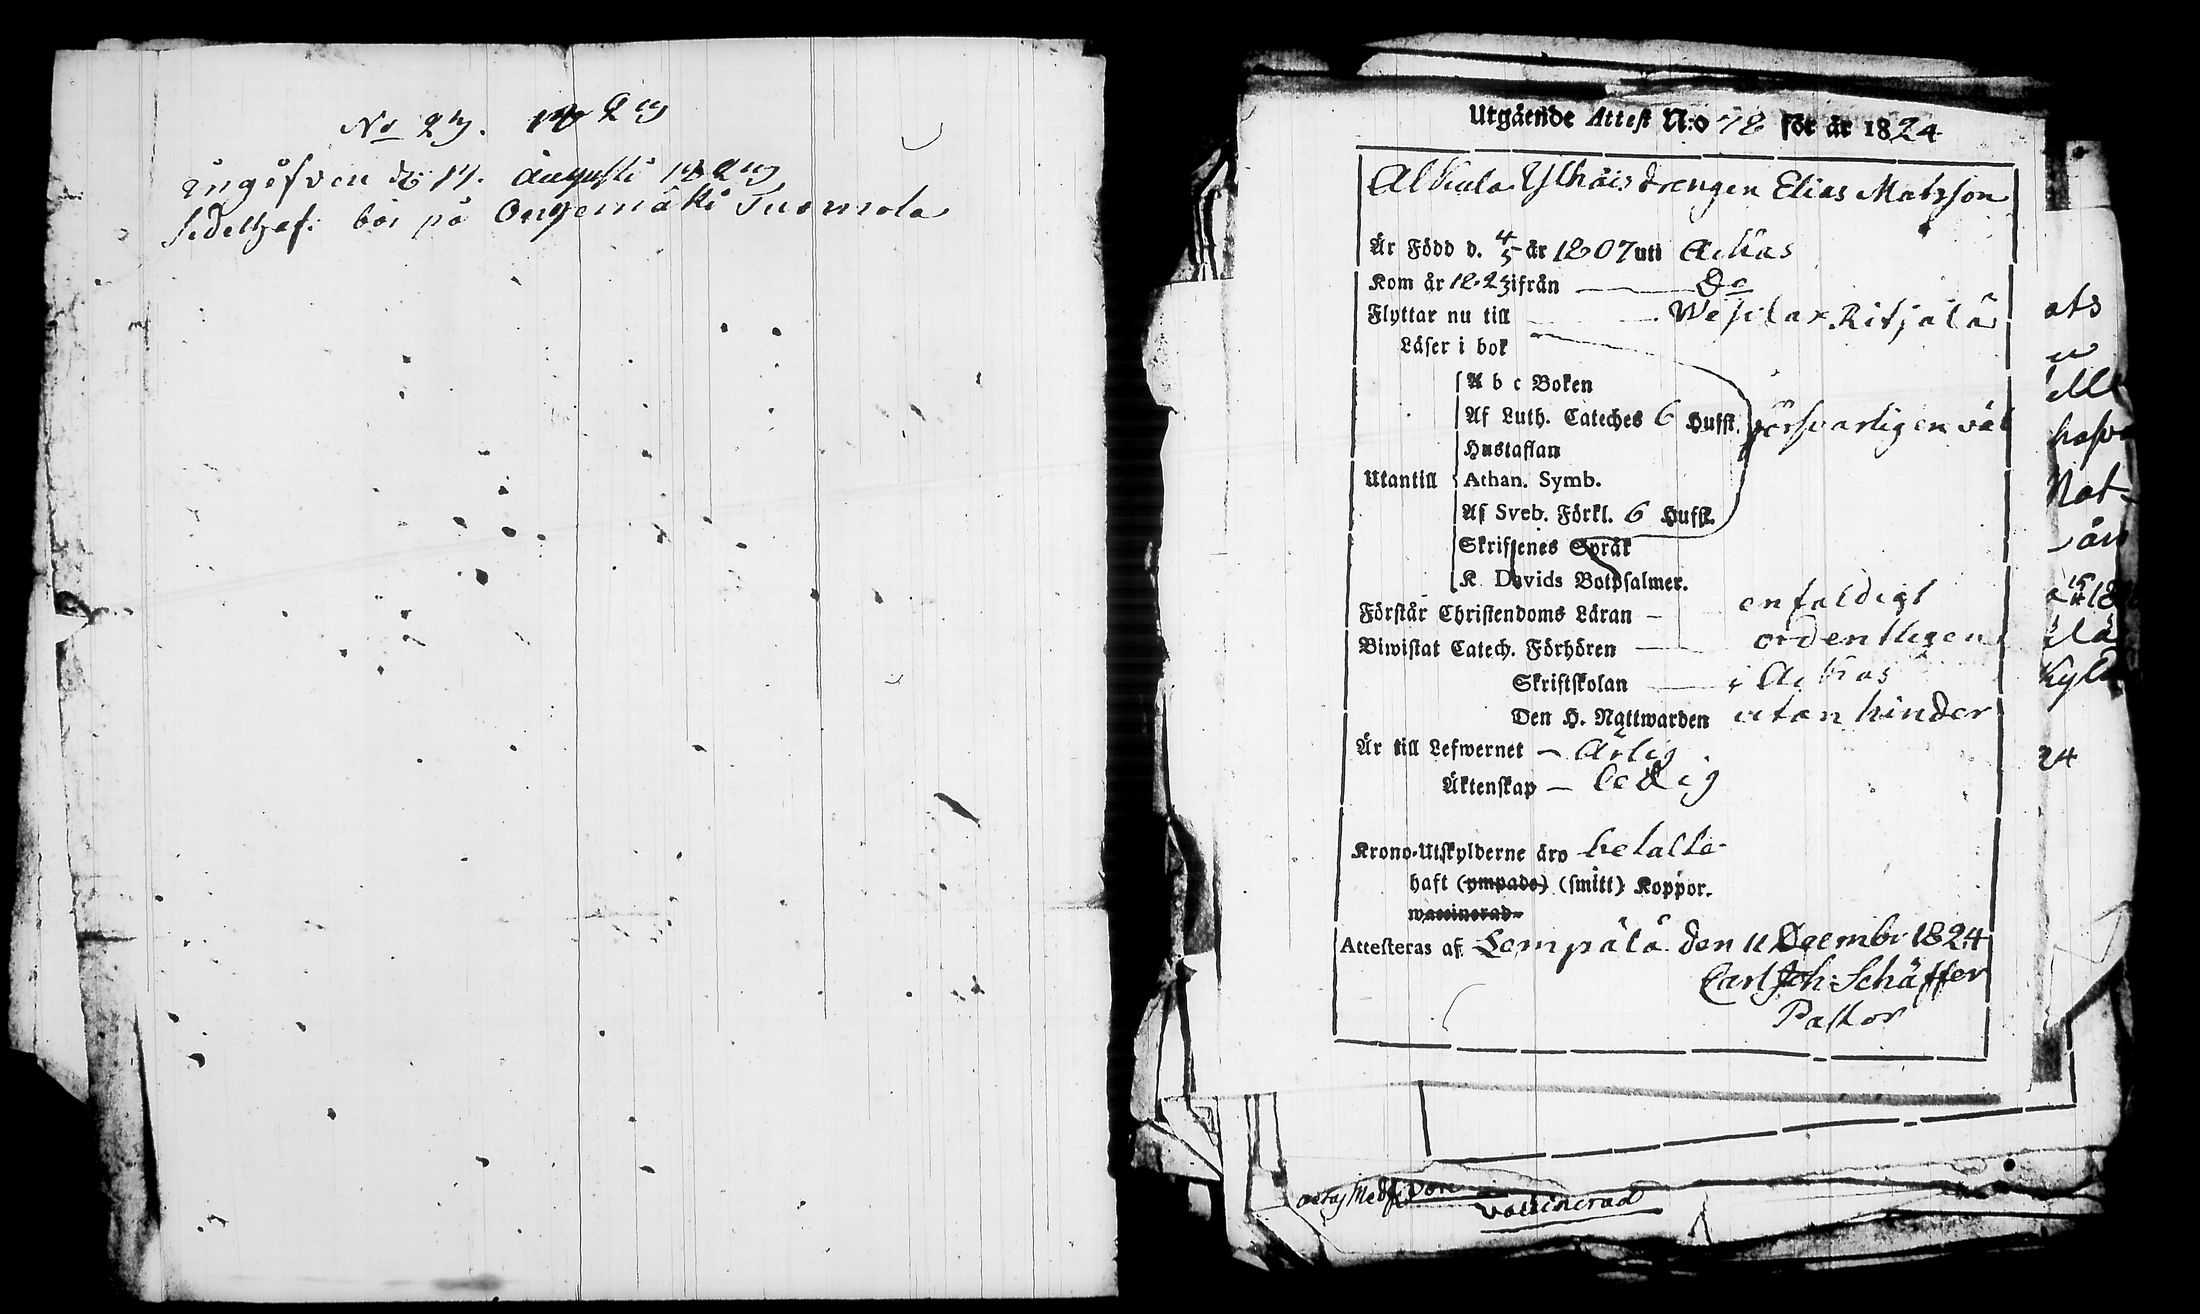 No 27. 1827
Ingifven d: 17. Augusti 1827
Sedelhaf: bor på Ongemäki Tuomola
Utgående Attest N:o 78 för år 1824
Alkula Ylhäis drengen Elias Matsson
Är Född d. 4/5 år 1807 uti Ackas
Kom år 1823 ifrån — Do
Flyttar nu till — Wesilax Ritjala
Läser i bok
A b c Boken
Af Luth. Cateches 6 Hufst. försvarligen väl
Hustaflan
Utantill Athan. Symb.
Af Sveb. Förkl. 6 Hufst.
Skriftenes Språk
K Davids Botpsalmer.
Förstår Christendoms Läran — enfaldigt
Biwistat Catech. Förhören — ordentligen
Skriftskolan — i Ackas
Den H. Nattwarden utan hinder
Är till Lefwernet — Ärlig
Äktenskap — ledig
Krono-Utskylderne äro betalte
haft (ympade) (smitt) Koppor.
waccinerad
Attesteras af Lempälä den 11 December 1824
Carl Joh: Schäffer
Pastor
ats
hafv
Nat-
24
vaccinerad